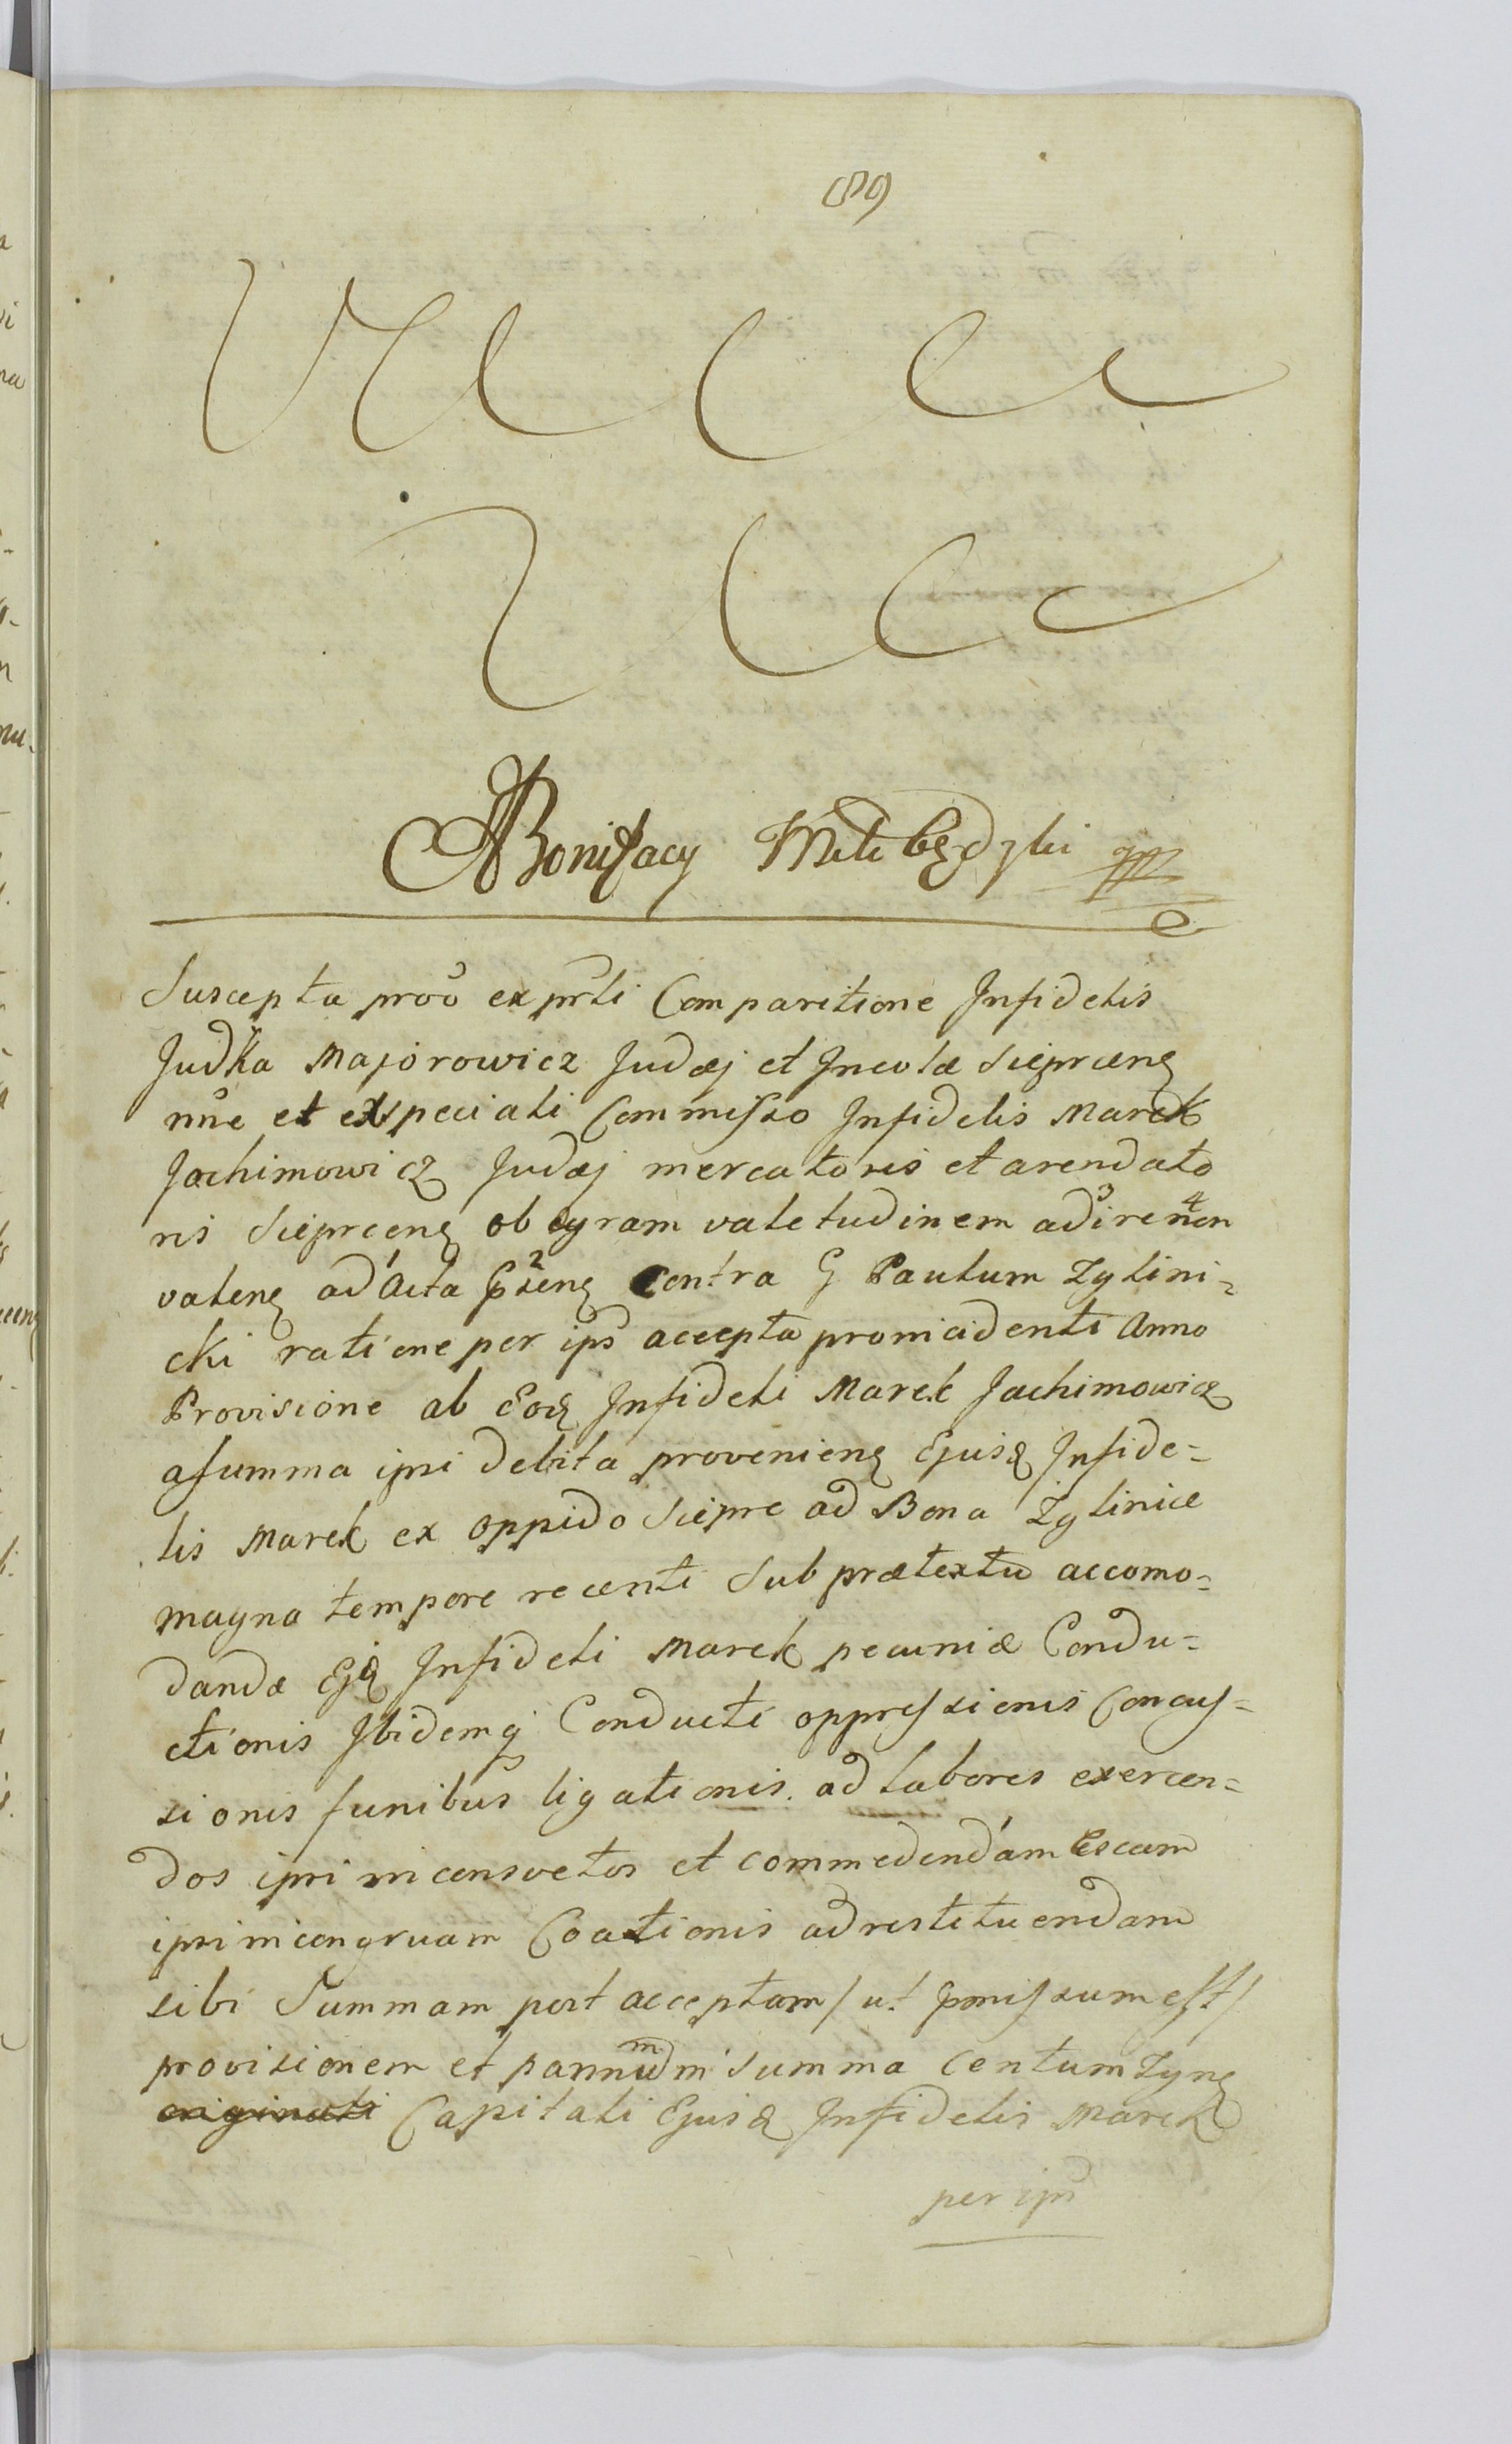 89
Bonifacy Mile będzki mp
Suscepta prõõ ex prñti Comparitione Infidelis
Judka Majorowicz Judæj et Incolæ Sieprcenẽ
nñe et exspeciali Commisso Infidelis Marek
Jachimowicz Judæj mercatoris et arendato
ris Sieprcenẽ ob ægram valetudinem ad ire non
valenẽ ad Acta contra G Paulum Zylini-
cki ratione per ips̃ accepta pro incidenti Anno
Provisione ab Eod̃ Infideli Marek Jachimowicz
a summa ipsi debita provenienẽ Ejusd̃ Infide=
lis Marek ex oppido Sieprc ad Bona Żylinice
magna tempore recenti Sub prætextu accomo=
dandæ Infideli Marek pecuniæ Condu=
ctionis Ibidemq̃ Conducti oppressionis Concus=
sionis funibus ligationis ad labores exercen=
dos ipsi inconsvetos et commedendam Escam
ipsi incongruam Coactionis ad restituendam
sibi Summam post acceptam / ut p̃missum est /
provisionem et summa centum
originali Capitali Ejusd̃ Infidelis Marek
per ips̃